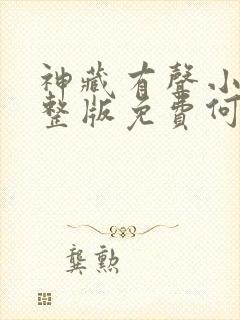 神藏有聲小
整版免費何
龔勲